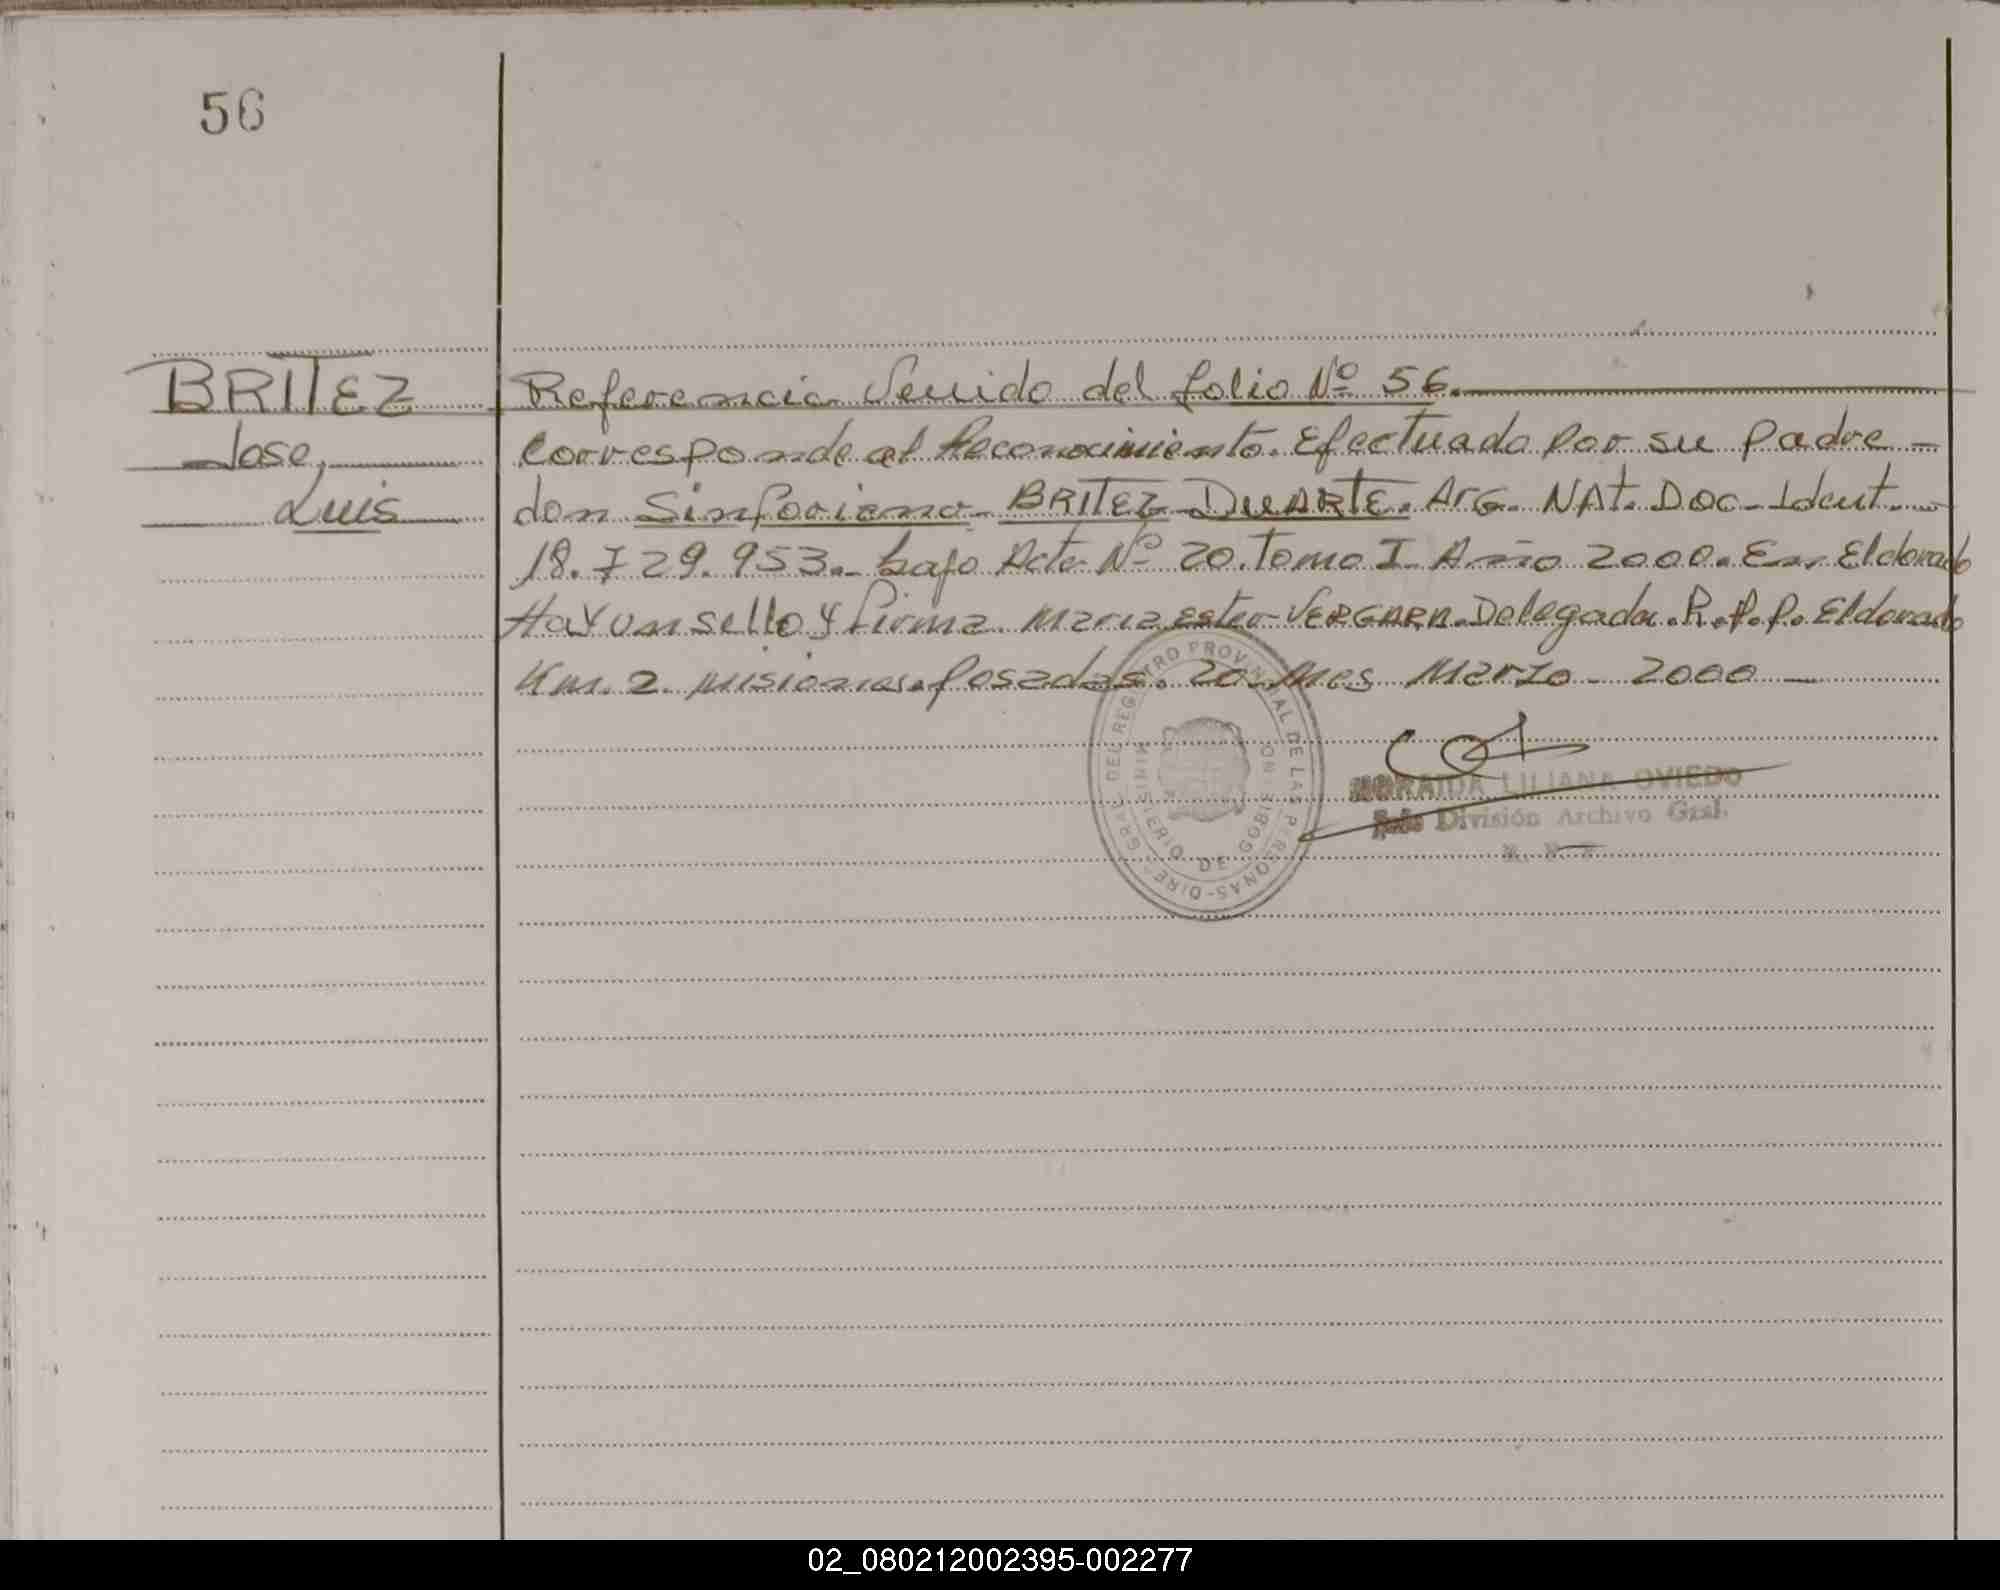 56
BRITEZ
Jose,
Luis
Referencia Venido del folio Nº 56.
Corresponde al Reconocimiento. Efectuado Por su Padre -
don Sinforiano BRITEZ DUARTE. Arg. NAt. Doc. Ident. -
18.729.953.- bajo Acta Nº 20. Tomo I. Año 2000. En Eldorado
Hay un sello y firma. Maria ester VERGARA. Delegada. R.P.P. Eldorado
Km. 2. Misiones. Posadas. 20 Mes Marzo - 2000 -
DEL REGISTRO PROVINCIAL DE LAS PERSONAS - DIREC. GRAL.
MINISTERIO DE GOBIERNO
NORAIDA LILIANA OVIEDO
División Archivo Gral.
02_080212002395-002277